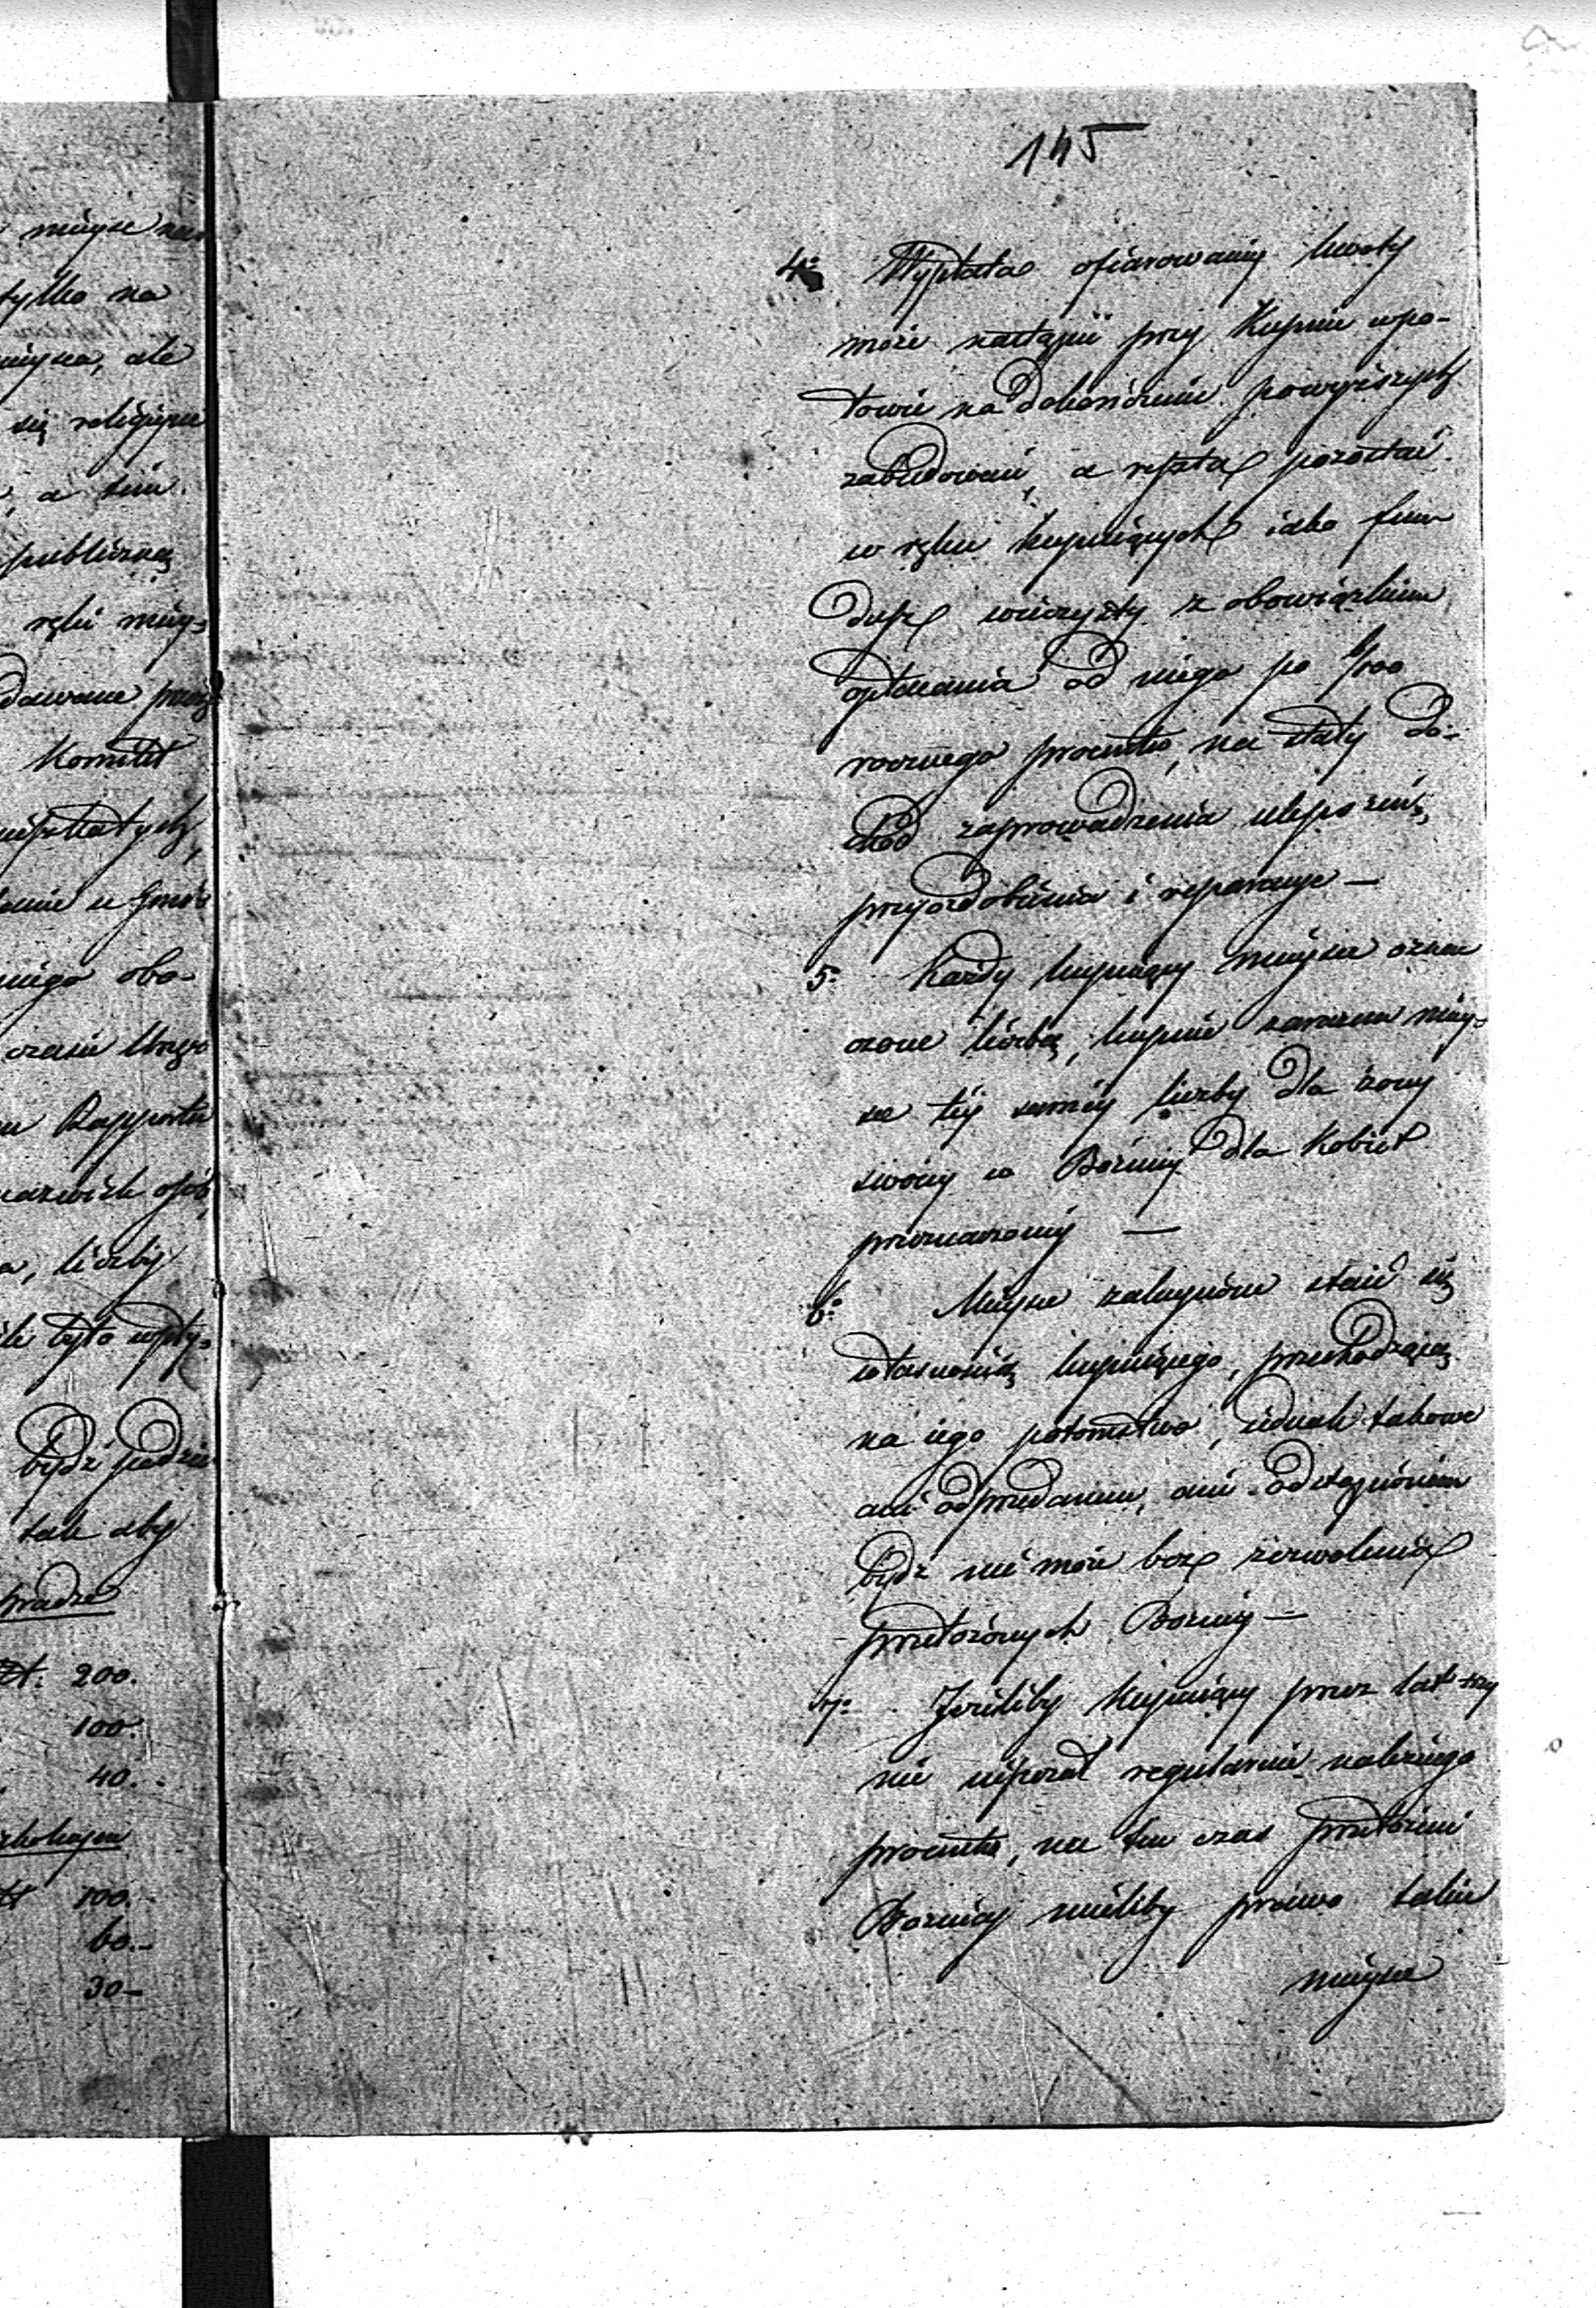 mieysc na
tylko na
mieysca, ale
się religijne
, a tém
publiczną
ręki miey-
dawane przez
Komitet
nieprzetartych,
u Gmi
niego obo-
czasu
Rapportu
nazwisk osób,
a, liczby
tylo wpły-
bydź podzie
tak aby
przodzie
zł: 200.
100.
40.
zł 100.
60.-
30-
145
4o Wypłata ofiarowaney kwoty
może nastąpić przy Kupnie wpo-
łowie na dokończenie powyższych
zabudowań, a reszta pozostać
w ręku kupuiących iako fun
dusz wieczysty z obowiązkiem
opłacania od niego po 6/100
rocznego procentu, na stały do-
chód zaprowadzenia ulepszeń,
przyozdobienia i reparacye —
5o Każdy kupuiący mieysce ozna
czone liczbą, kupuie zarazem miey-
sce téy saméy liczby dla żony
swoiéy w Bóżnicy dla Kobiet
przeznaczonéy —
6o Mieysce zakupione staie się
własnością kupuiącego, przechodzącą
na iego potomstwo, iednak takowe
ani odprzedanem, ani odstąpionem
bydź nie może bez zezwolenia
przełożonych Bożnicy —
7o Jeżeliby kupuiący przez lat trzy
nie uiszczał regularnie należnego
procentu, na ten czas przełożeni
Bożnicy mieliby prawo takie
mieysce